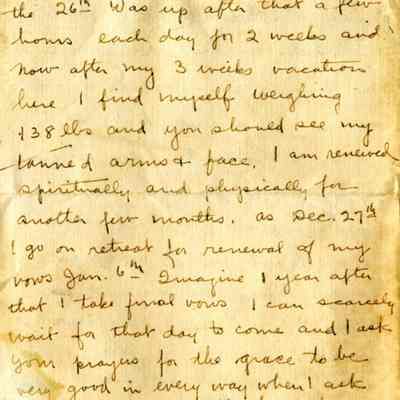 the 26th Was up after that a few
hours each day for 2 weeks and
now after my 3 weeks vacation
here I find myself weighing
138 lbs and you should see my
tanned arms & face. I am renewed
spiritually and physically for
another few months. as Dec. 27th
I go on retreat for renewal of my
vows Jan. 6th Imagine 1 year after
that I take final vows I can scarcely
wait for that day to come and I ask
your prayers for the grace to be
very good in every way when I ask